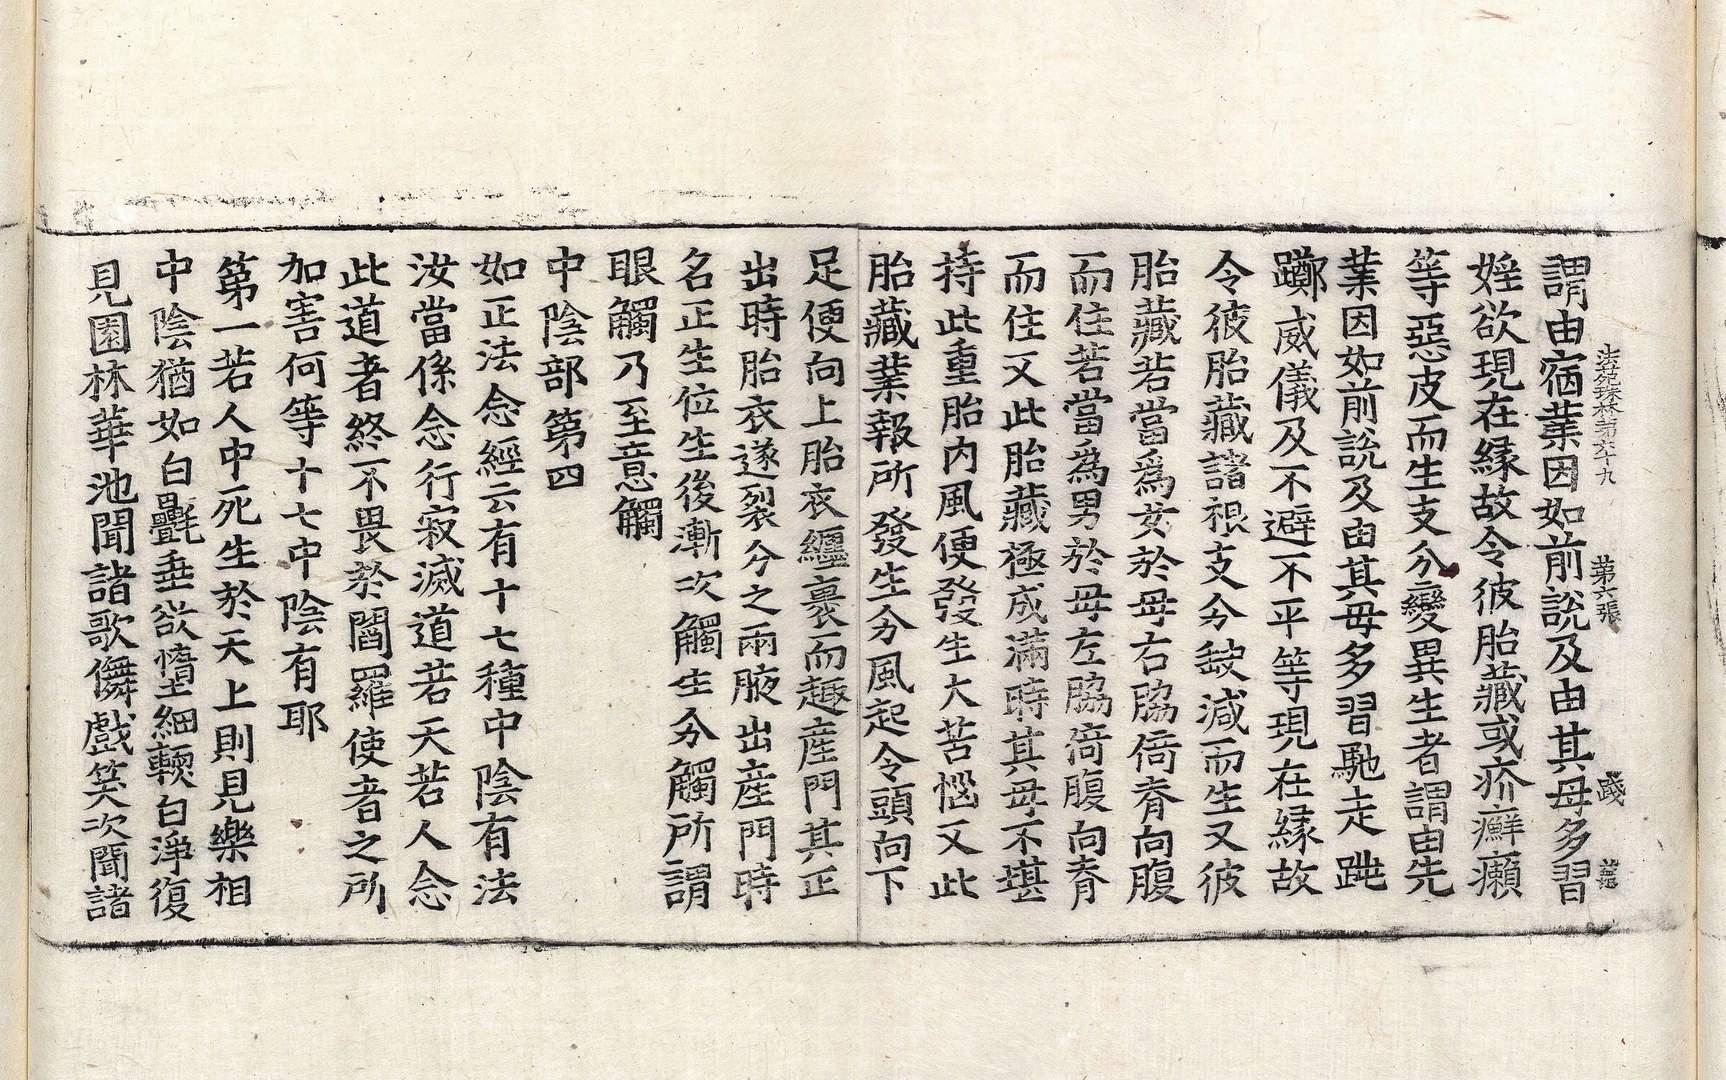 法苑珠林第六十九　第六張
謂由宿業因如前說及由其母多習
婬欲現在緣故令彼胎藏或疥癬癩
等惡皮而生支分變異生者謂由先
業因如前說及由其母多習馳走跳
躑威儀及不避不平等現在緣故
令彼胎藏諸根支分缺減而生又彼
胎藏若當爲女於母右脇倚脊向腹
而住若當爲男於母左脇倚腹向脊
而住又此胎藏極成滿時其母不堪
持此重胎內風便發生大苦惱又此
胎藏業報所發生分風起令頭向下
足便向上胎衣纏裹而趣産門其正
出時胎衣遂裂分之兩腋出産門時
名正生位生後漸次觸生分觸所謂
眼觸乃至意觸
中陰部第四
如正法念經云有十七種中陰有法
汝當係念行寂滅道若天若人念
此道者終不畏於閻羅使者之所
加害何等十七中陰有耶
第一若人中死生於天上則見樂相
中陰猶如白㲲垂欲墮細輭白淨復
見園林華池聞諸歌儛戲笑次聞諸